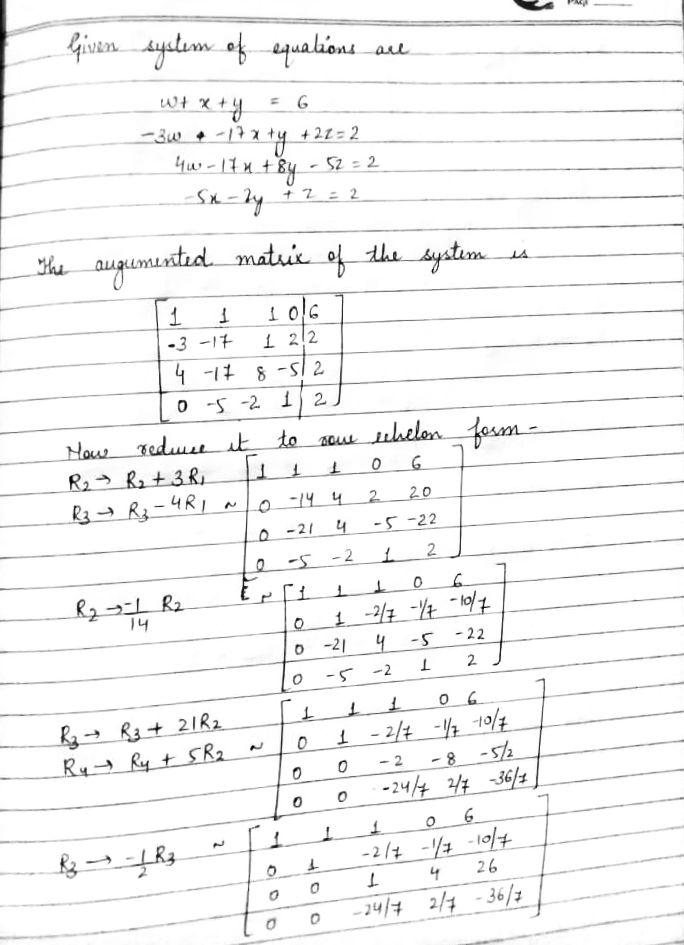 PAGE
Given system of equations are
w+ x+y = 6
-3w + -17x+y +2z=2
4w-17x+8y-5z=2
-5x-2y +z=2
The augumented matrix of the system is
1 1 1 0 | 6
-3 -17 1 2 | 2
4 -17 8 -5 | 2
0 -5 -2 1 | 2
Now reduce it to row echelon form -
R2 → R2 + 3R1
R3 → R3 - 4R1 ~
1 1 1 0 6
0 -14 4 2 20
0 -21 4 -5 -22
0 -5 -2 1 2
R2 → -1/14 R2 ~
1 1 1 0 6
0 1 -2/7 -1/7 -10/7
0 -21 4 -5 -22
0 -5 -2 1 2
R3 → R3 + 21R2
R4 → R4 + 5R2 ~
1 1 1 0 6
0 1 -2/7 -1/7 -10/7
0 0 -2 -8 -5/2
0 0 -24/7 2/7 -36/7
R3 → -1/2 R3 ~
1 1 1 0 6
0 1 -2/7 -1/7 -10/7
0 0 1 4 26
0 0 -24/7 2/7 -36/7